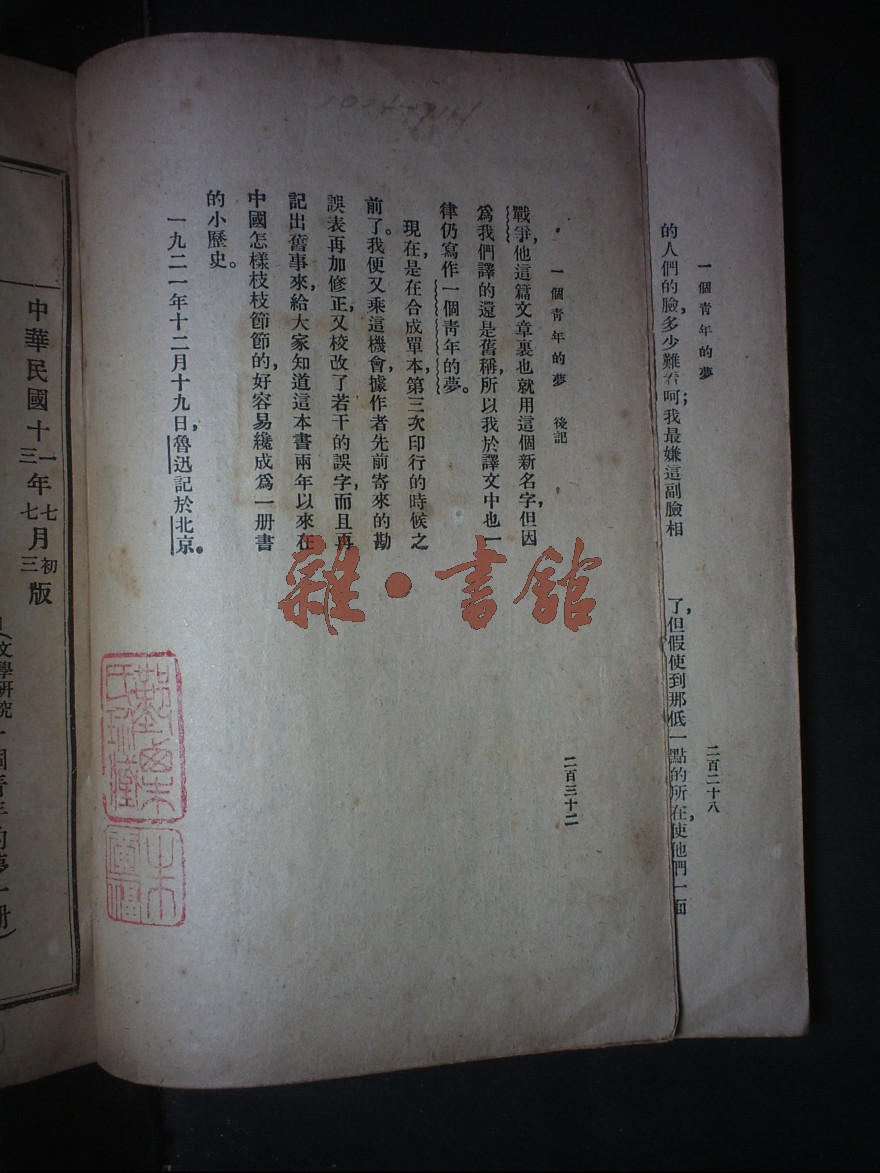 一個青年的夢
二百二十八
的人們的臉,多少難看呵;我最嫌這副臉相
了,但假使到那低一點的所在,使他們一面
一個青年的夢 後記
二百三十二
戰爭,他這篇文章裏也就用這個新名字,但因
爲我們譯的還是舊稱,所以我於譯文中也一
律仍寫作一個靑年的夢。
現在是在合成單本,第三次印行的時候之
前了。我便又乘這機會,據作者先前寄來的勘
誤表再加修正,又校改了若干的誤字,而且再
記出舊事來,給大家知道這本書兩年以來在
中國怎樣枝枝節節的,好容易纔成爲一册書
的小歷史。
一九二一年十二月十九日,魯迅記於北京。
雜·書館
中華民國十一年七月初版
三七三
(文學研究
一個青年的夢一册)